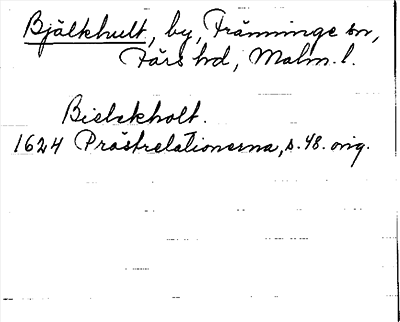 Bjälkhult, by, Tränninge sn,
Färs hd, Malm. l.
Bielckholt.
1624 Prästrelationerna, s. 48. orig.